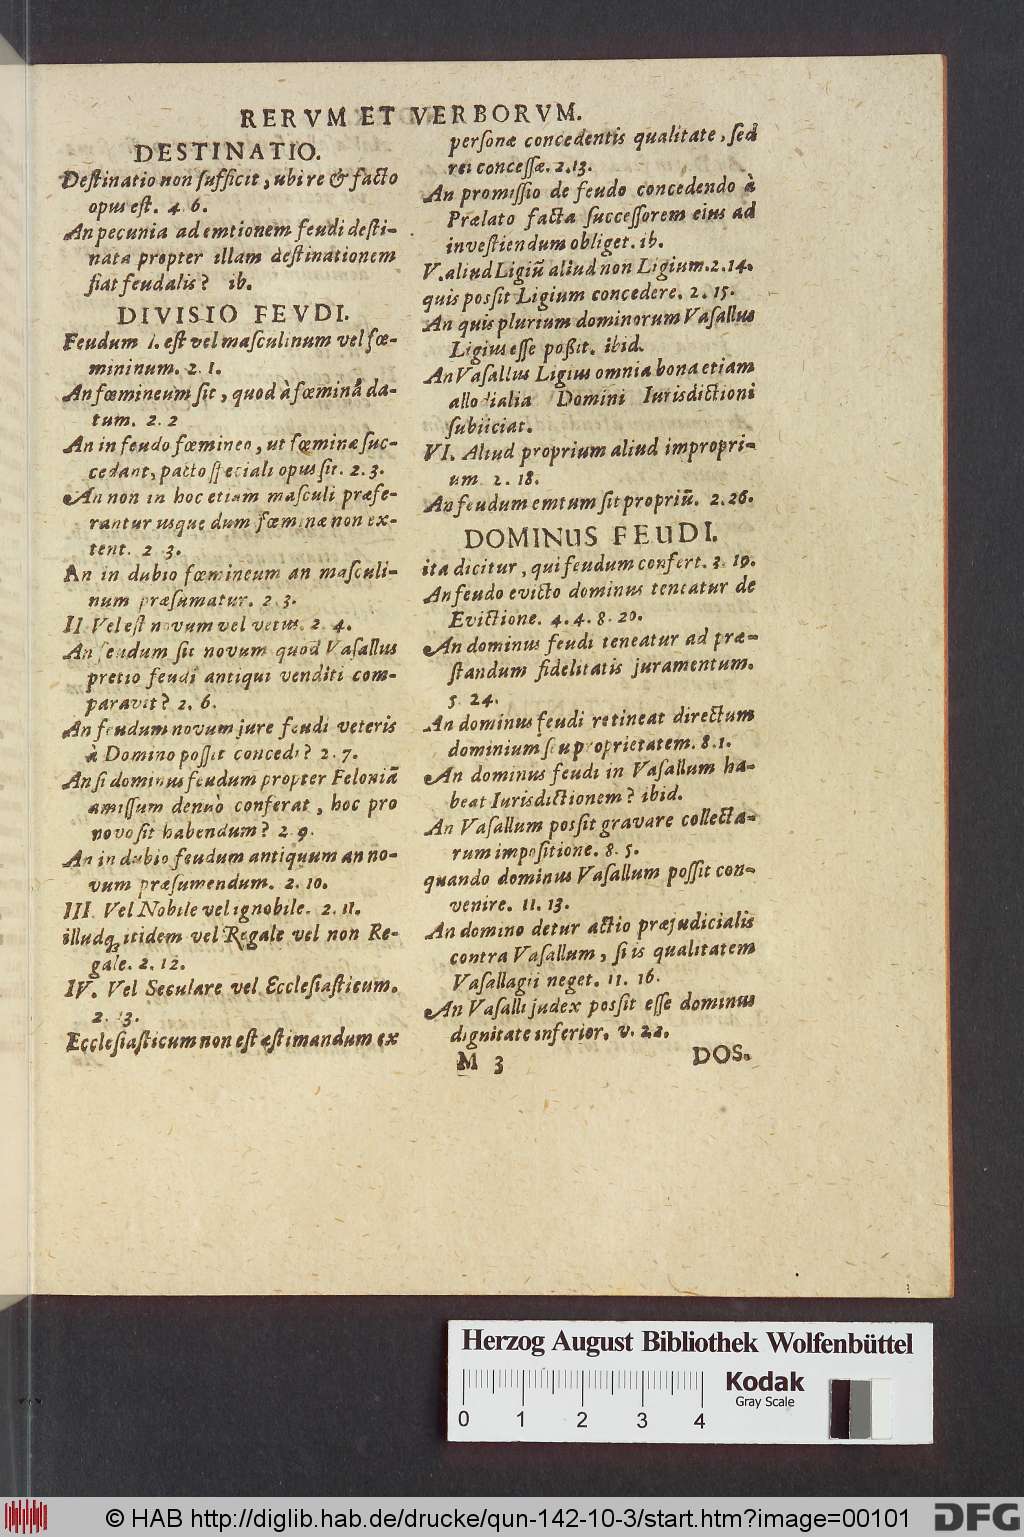 RERVM ET VERBORVM.
DESTINATIO.
Destinatio non sufficit, ubi re & facto
opus est. 4. 6.
An pecunia ad emtionem feudi desti-
nata propter illam destinationem
fiat feudalis? ib.
DIVISIO FEVDI.
Feudum I. est vel masculinum vel fœ-
mininum. 2. 1.
An fœmineum sit, quod à fœminâ da-
tum. 2. 2
An in feudo fœmineo, ut fœminæ suc-
cedant, pacto speciali opus sit. 2. 3.
An non in hoc etiam masculi præfe-
rantur usque dum fœminæ non ex-
tent. 2. 3.
An in dubio fœmineum an masculi-
num præsumatur. 2. 3.
II. Vel est novum vel vetus. 2. 4.
An feudum sit novum quod Vasallus
pretio feudi antiqui venditi com-
paravit? 2. 6.
An feudum novum jure feudi veteris
à Domino possit concedi? 2. 7.
An si dominus feudum propter Feloniã
amissum denuò conferat, hoc pro
novo sit habendum? 2. 9.
An in dubio feudum antiquum an no-
vum præsumendum. 2. 10.
III. Vel Nobile vel ignobile. 2. 11.
illudq; itidem vel Regale vel non Re-
gale. 2. 12.
IV. Vel Seculare vel Ecclesiasticum.
2. 13.
Ecclesiasticum non est æstimandum ex
personæ concedentis qualitate, sed
rei concessæ. 2. 13.
An promissio de feudo concedendo à
Prælato facta successorem eius ad
investiendum obliget. ib.
V. aliud Ligiũ aliud non Ligium. 2. 14.
quis possit Ligium concedere. 2. 15.
An quis plurium dominorum Vasallus
Ligius esse poßit. ibid.
An Vasallus Ligius omnia bona etiam
allodialia Domini Iurisdictioni
subiiciat.
VI. Aliud proprium aliud impropri-
um. 2. 18.
An feudum emtum sit propriũ. 2. 26.
DOMINUS FEUDI.
ita dicitur, qui feudum confert. 3. 19.
An feudo evicto dominus teneatur de
Evictione. 4. 4. 8. 20.
An dominus feudi teneatur ad præ-
standum fidelitatis juramentum.
5. 24.
An dominus feudi retineat directum
dominium seu proprietatem. 8. 1.
An dominus feudi in Vasallum ha-
beat Iurisdictionem? ibid.
An Vasallum possit gravare collecta-
rum impositione. 8. 5.
quando dominus Vasallum possit con-
venire. 11. 13.
An domino detur actio præjudicialis
contra Vasallum, si is qualitatem
Vasallagii neget. 11. 16.
An Vasalli judex possit esse dominus
dignitate inferior. v. 22.
M 3 DOS.
Herzog August Bibliothek Wolfenbüttel
0 1 2 3 4
Kodak
Gray Scale
© HAB http://diglib.hab.de/drucke/qun-142-10-3/start.htm?image=00101
DFG